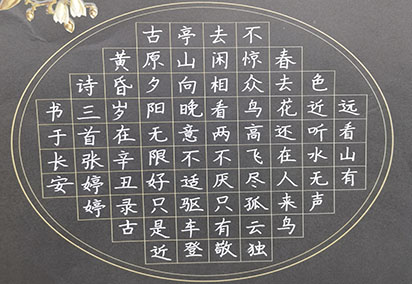 远看山有
色近听水无声
春去花还在人来鸟
不惊众鸟高飞尽孤云独
去闲相看两不厌只有敬
亭山向晚意不适驱车登
古原夕阳无限好只是近
黄昏岁在辛丑录古
诗三首张婷婷
书于长安